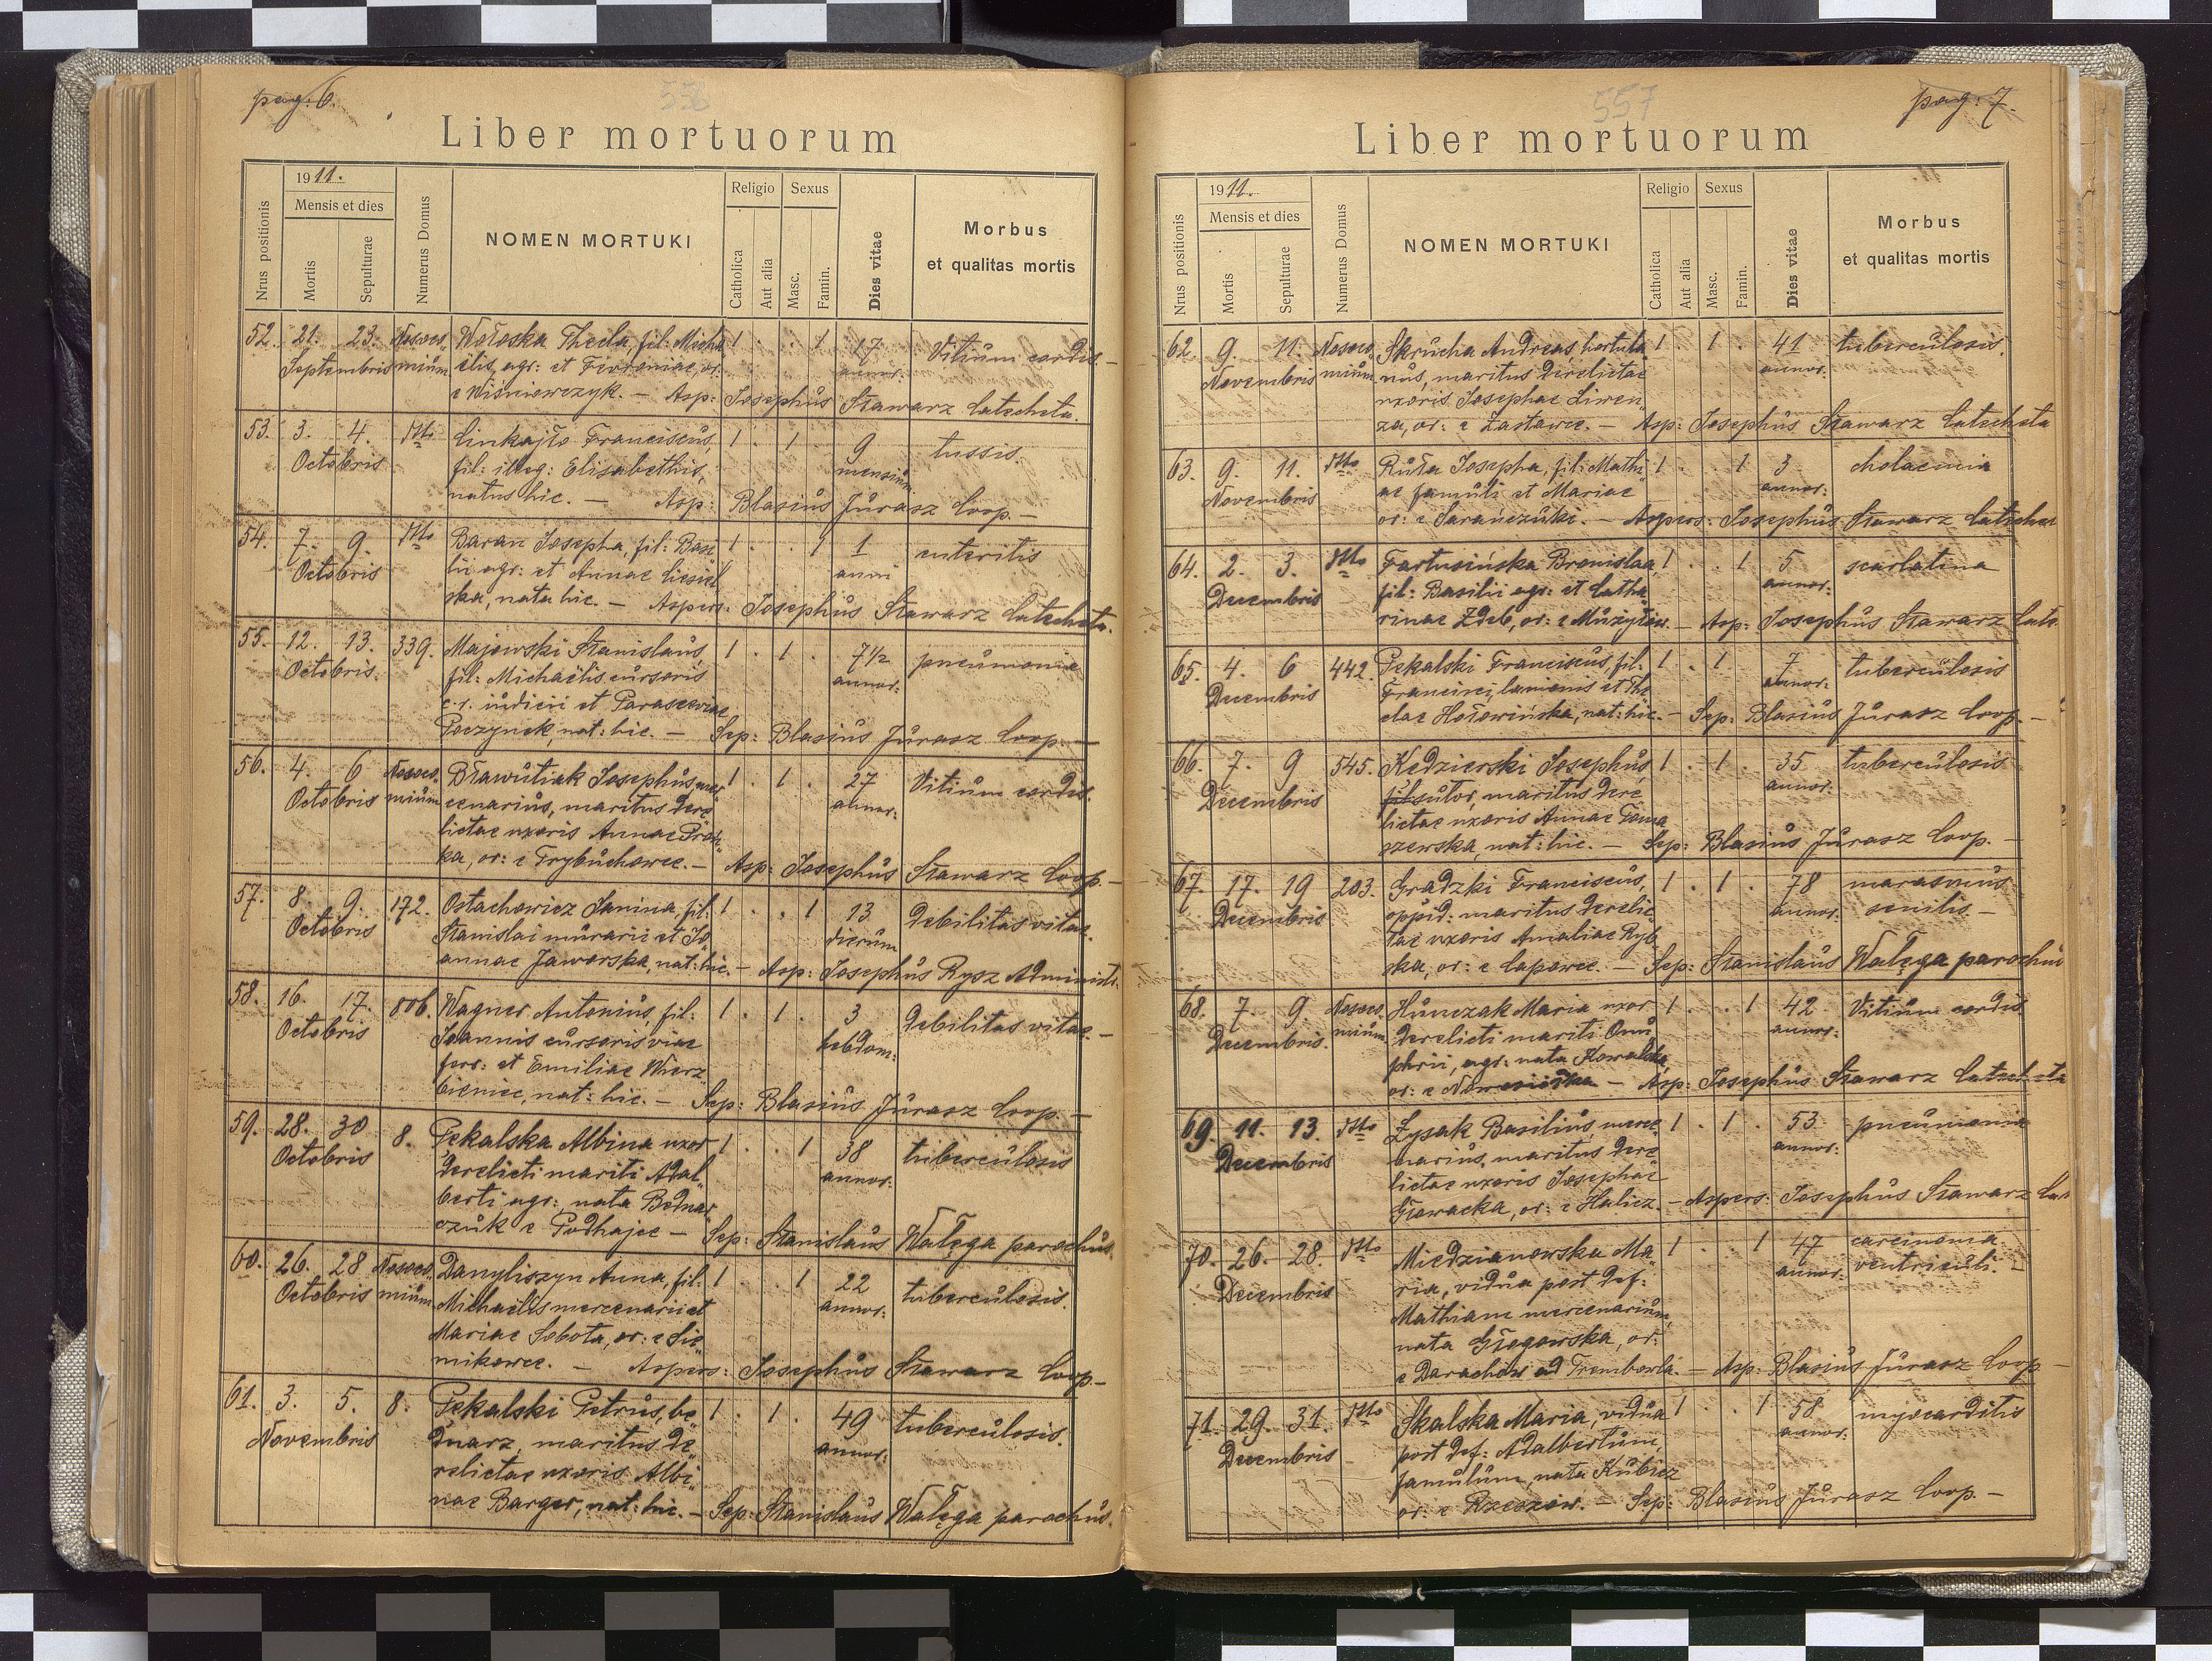 pag: 6.
556
Liber mortuorum
Nrus positionis
1911.
Mensis et dies
Mortis
Sepulturae
Numerus Domus
NOMEN MORTUKI
Religio
Catholica
Aut alia
Sexus
Masc.
Famin.
Dies vitae
Morbus
et qualitas mortis
52. 21. 23. Nosoco Wołoska Thecla, fil: Micha 1 . . 1 17 Vitium cordis. –
Septembris mium ëlis, agr: et Fevroniae, or: annor:
e Wiśniowczyk. – Asp: Josephus Stawarz Catecheta.
53. 3. 4. Itto Linkajło Franciscus, 1 . 1 . 9 tussis.
Octobris fil: illeg: Elisabethis, mensium
natus hic. – Asp: Blasius Jurasz Coop. –
54. 7. 9. Itto Baran Josepha, fil: Basi 1 . . 1 1 enteritis
Octobris lii agr: et Annae Ciesiel anni
ska, nata hic. – Aspers: Josephus Stawarz Catecheta.
55. 12. 13. 339. Majewski Stanislaus, 1 . 1 . 7½ pneumonia
Octobris. fil: Michaëlis cursoris annor:
c. r. iudicii et Parasceviae
Poczynek, nat: hic. – Sep: Blasius Jurasz Coop. –
56. 4. 6 Nosoco Bławutiak Josephus mer 1 . 1 . 27 Vitium cordis.
Octobris mium cenarius, maritus dere annor:
lictae uxoris Annae
ka, or: e Trybuchowce. – Asp: Josephus Stawarz Coop. –
57. 8. 9. 172. Ostachowicz Janina, fil: 1 . . 1 13 Debilitas vitae.
Octobris Stanislai murarii et Jo dierum
annae Jaworska, nat: hic. – Asp: Josephus Rysz Administr.
58. 16. 17. 806. Wagner Antonius, fil: 1 . 1 . 3 Debilitas vitae. –
Octobris Joannis cursoris viae hebdom:
ferr: et Emiliae Wierz
bieniec, nat: hic. – Sep: Blasius Jurasz Coop. –
59. 28. 30 8. Pekalska Albina uxor 1 . . 1 38 tuberculosis
Octobris derelicti mariti Adal annor:
berti agr: nata Bednar
czuk e Podhajce – Sep: Stanislaus Wałęga parochus.
60. 26. 28 Nosoco Danyliszyn Anna, fil: 1 . . 1 22 tuberculosis.
Octobris mium Michaëlis mercenarii et annor:
Mariae Sobota, or: e Sie
mikowce. – Aspers: Josephus Stawarz Coop –
61. 3. 5. 8. Pekalski Petrus, be 1 . 1 . 49 tuberculosis.
Novembris dnarz, maritus de annor:
relictae uxoris Albi
nae Barger, nat: hic. – Sep: Stanislaus Wałęga parochus.
pag: 7.
557
Liber mortuorum
Nrus positionis
1911.
Mensis et dies
Mortis
Sepulturae
Numerus Domus
NOMEN MORTUKI
Religio
Catholica
Aut alia
Sexus
Masc.
Famin.
Dies vitae
Morbus
et qualitas mortis
62. 9. 11. Nosoco Skrucha Andreas, hortula 1 . 1 . 41 tuberculosis.
Novembris mium nus, maritus derelictae annor:
uxoris Josephae Liwen
za, or: e Zastawce. – Asp: Josephus Stawarz Catecheta
63. 9. 11. Itto Ruła Josepha, fil: Mathi 1 . . 1 3 cholaemia
Novembris ae famuli et Mariae annor:
or: e Sarańczuki. – Aspers: Josephus Stawarz Catechet
64. 2. 3. Itto Fartusińska Bronislaa, 1 . . 1 5 scarlatina
Decembris fil: Basilii agr: et Catha annor:
rinae Zdeb, or: e Mużyłów. – Asp: Josephus Stawarz Cate.
65. 4. 6 442. Pekalski Franciscus, fil: 1 . 1 7 tuberculosis
Decembris Francisci, lanionis et The annor:
clae Hołowińska, nat: hic. – Sep: Blasius Jurasz Coop. –
66. 7. 9 545. Kedzierski Josephus, 1 . 1 . 35 tuberculosis
Decembris fil sutor, maritus dere annor:
lictae uxoris Annae Toma
szewska, nat: hic. – Sep: Blasius Jurasz Coop. –
67. 17. 19 203. Gradzki Franciscus, 1 . 1 . 78 marasmus
Decembris oppid: maritus derelic annor: senilis –
tae uxoris Amaliae Ryb
ska, or: e Łapowce. – Sep: Stanislaus Wałęga parochus
68. 7. 9. Nosoco Hunczak Maria uxor 1 . . 1 42 Vitium cordis
Decembris. mium derelicti mariti Onu annor:
phrii, agr: nata Kowalska,
or: e – Asp: Josephus Stawarz Catecheta
69. 11. 13. Itto Łysak Basilius merce 1 . 1 . 53 pneumonia
Decembris narius, maritus dere annor:
lictae uxoris Josephae
Głowacka, or: e Halicz. – Aspers: Josephus Stawarz Cat
70. 26. 28. Itto Miedzianowska Ma 1 . . 1 47 carcinoma
Decembris ria, vidua post def: annor: ventriculi. –
Mathiam mercenarium,
nata Głogowska, or:
e Darachów ad Trembowla. – Asp: Blasius Jurasz Coop –
71. 29. 31. Itto Skalska Maria, vidua 1 . . 1 58 myocarditis
Decembris post def: Adalbertum, annor:
famulum, nata Kubicz
or: e Rzeszów. – Sep: Blasius Jurasz Coop. –